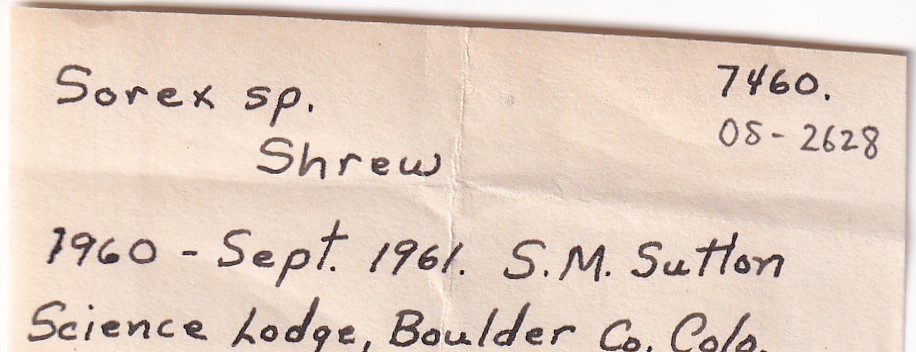 Sorex sp. 7460.
OS-2628
Shrew
1960 - Sept. 1961. S.M. Sutton
Science Lodge, Boulder Co. Colo.